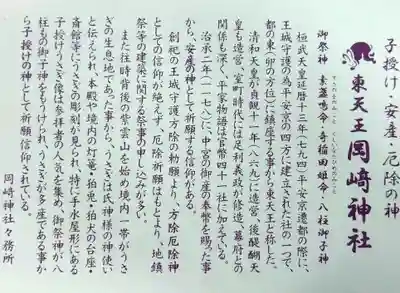 子授け・安産・厄除の神
東天王 岡﨑神社
御祭神 素盞鳴命・奇稲田姫命・八柱御子神
桓武天皇延暦十三年(七九四)平安京遷都の際に、
王城守護の為平安京の四方に建立された社の一つで、
都の東(卯の方位)に鎮座する事から東天王と称した。
清和天皇が貞観十一年(八六九)に造営、後醍醐天
皇も造営、室町時代には足利義政が修造、幕府との
関係も深く、平家物語は官幣四十一社に加えている。
治承二年(一一七八)に、中宮の御産の奉幣を賜った事
から、安産の神として祈願する信仰がある。
創祀の王城守護方除の勅願より、方除厄除神
としての信仰が絶えず、厄除祈願はもとより、地鎮
祭等の建築に関する祭事の申し込みが多い。
また往時背後の紫雲山を始め境内一帯がうさ
ぎの生息地であった事から、うさぎは氏神様の神使い
と伝えられ、本殿や境内の灯篭・狛兎・狛犬の台座・
斎館等にうさぎの彫刻が見られ、特に手水屋形にある
子授けうさぎ像は参拝者の人気を集め、御祭神が八
柱もの御子神をもうけられ、うさぎが多産である事か
ら子授けの神として祈願信仰されている。
岡﨑神社々務所